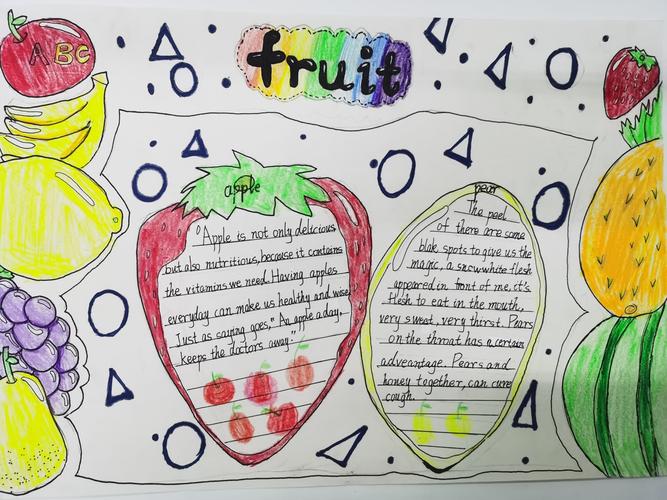 ABC
fruit
apple
Apple is not only delicious
but also nutritious, because it contains
the vitamins we need. Having apples
everyday can make us healthy and wise.
Just as saying goes," An apple a day,
keeps the doctors away."
pear
The peel
of there are some
blak spots to give us the
magic, a snowwhite flesh
appeared in front of me, it's
flesh to eat in the mouth,
very sweat, very thirst. Pears
on the throat has a certain
adveantage. Pears and
honey together, can cure
cough.